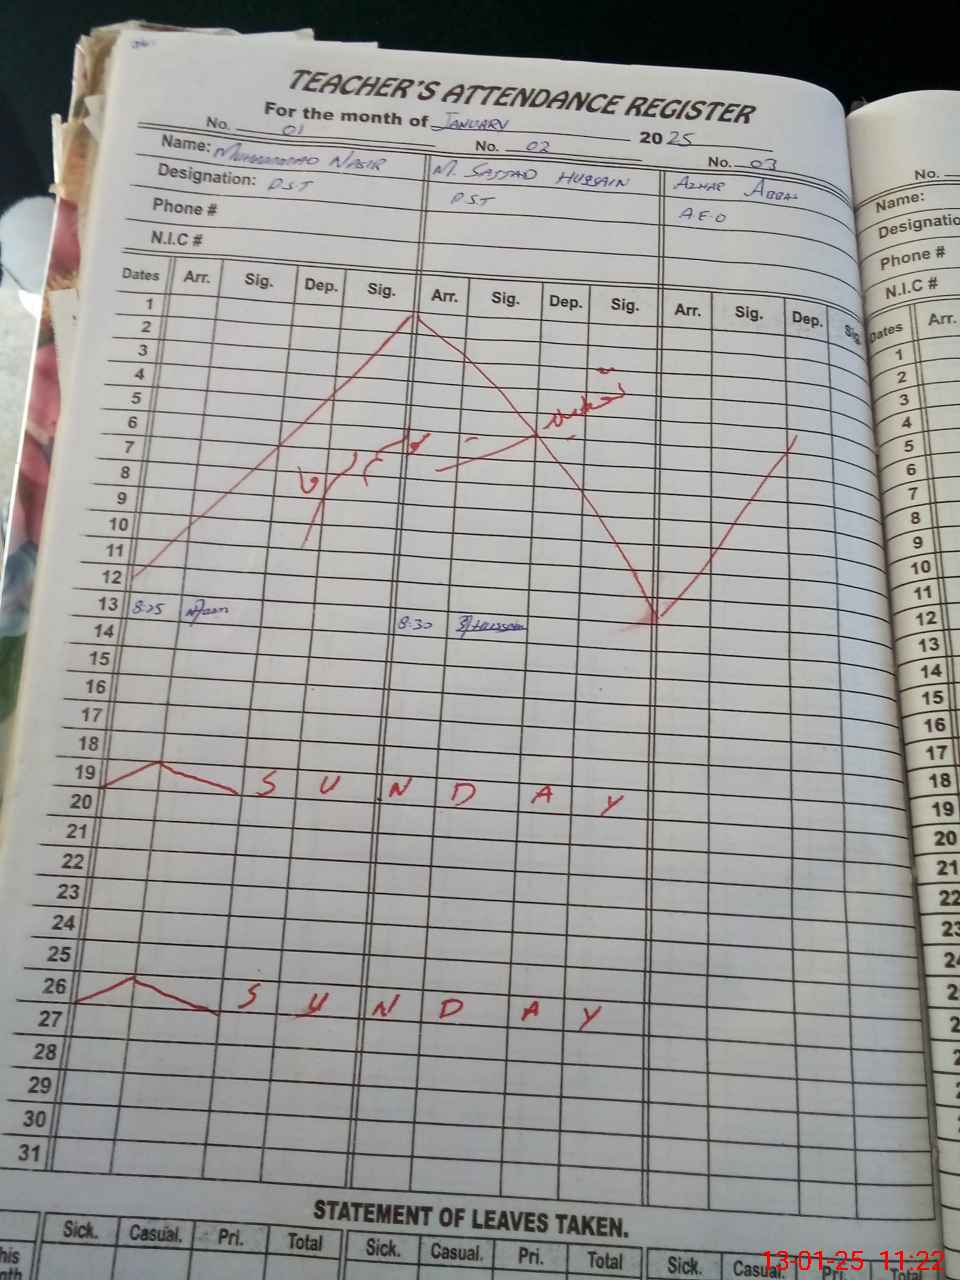 TEACHER'S ATTENDANCE REGISTER
For the month of JANUARY 2025
No. 01 No. 02 No. 03
Name: MUHAMMAD NASIR M. SAJJAD HUSSAIN AZHAR ABBAS
Designation: P.S.T P.S.T A.E.O
Phone #
N.I.C #
Dates Arr. Sig. Dep. Sig. Arr. Sig. Dep. Sig. Arr. Sig. Dep. Sig.
1
2
3
4
5
6
7
8
9
10
11
12
13 8:25 8:30
14
15
16
17
18
19 S U N D A Y
20
21
22
23
24
25
26 S U N D A Y
27
28
29
30
31
STATEMENT OF LEAVES TAKEN.
Sick. Casual. Pri. Total Sick. Casual. Pri. Total Sick. Casual. Pri. Total
No.
Name:
Designatio
Phone #
N.I.C #
Dates Arr.
1
2
3
4
5
6
7
8
9
10
11
12
13
14
15
16
17
18
19
20
21
22
23
13-01-25 11:22